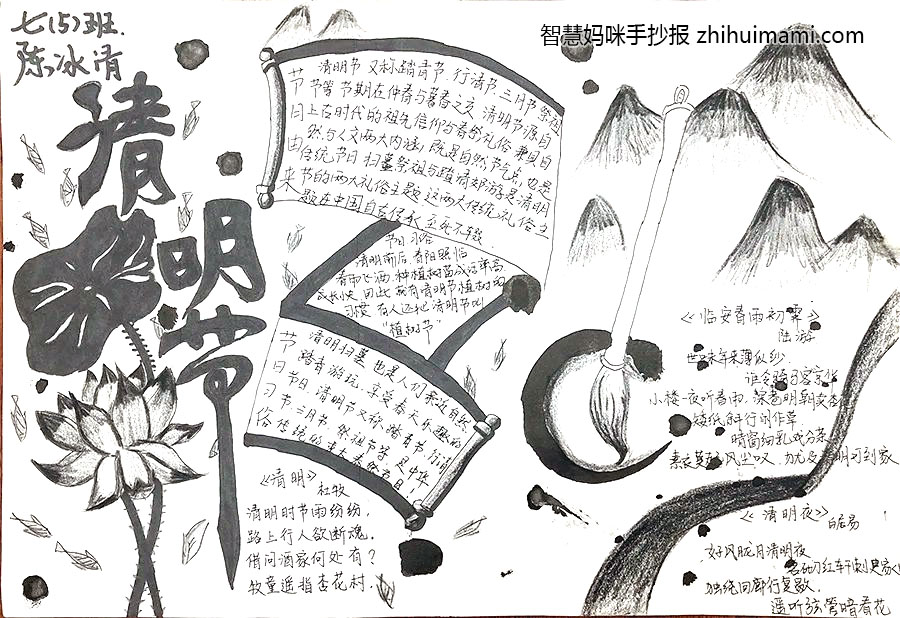 七(5)班.
陈冰清
智慧妈咪手抄报 zhihuimami.com
清
明
节
清明节 又称踏青节、行清节、三月节、祭祖
节 节等 节期在仲春与暮春之交 清明节源自
上古时代的祖先信仰与春祭礼俗 兼具自
然与人文两大内涵 既是自然节气点 也是
传统节日 扫墓祭祖与踏青郊游是清明
节的两大礼俗主题 这两大传统礼俗主
题在中国自古传承 至今不辍
节日习俗
清明前后 春阳照临
春雨飞洒 种植树苗成活率高
成长快 因此 我有清明节植树的
习惯 有人还把清明节叫
"植树节"
清明扫墓 也是人们亲近自然
踏青游玩、享受春天乐趣的
节日 清明节又称踏青节 行清
节 三月节、祭祖节等 是中华
《清明》
杜牧
清明时节雨纷纷,
路上行人欲断魂。
借问酒家何处有?
牧童遥指杏花村.
《临安春雨初霁》
陆游
世味年来薄似纱
谁令骑马客京华
小楼一夜听春雨 深巷明朝卖杏
矮纸斜行闲作草
晴窗细乳戏分茶
素衣莫起风尘叹 犹及清明可到家
《清明夜》
白居易
好风胧月清明夜
独绕回廊行复歇
遥听弦管暗看花